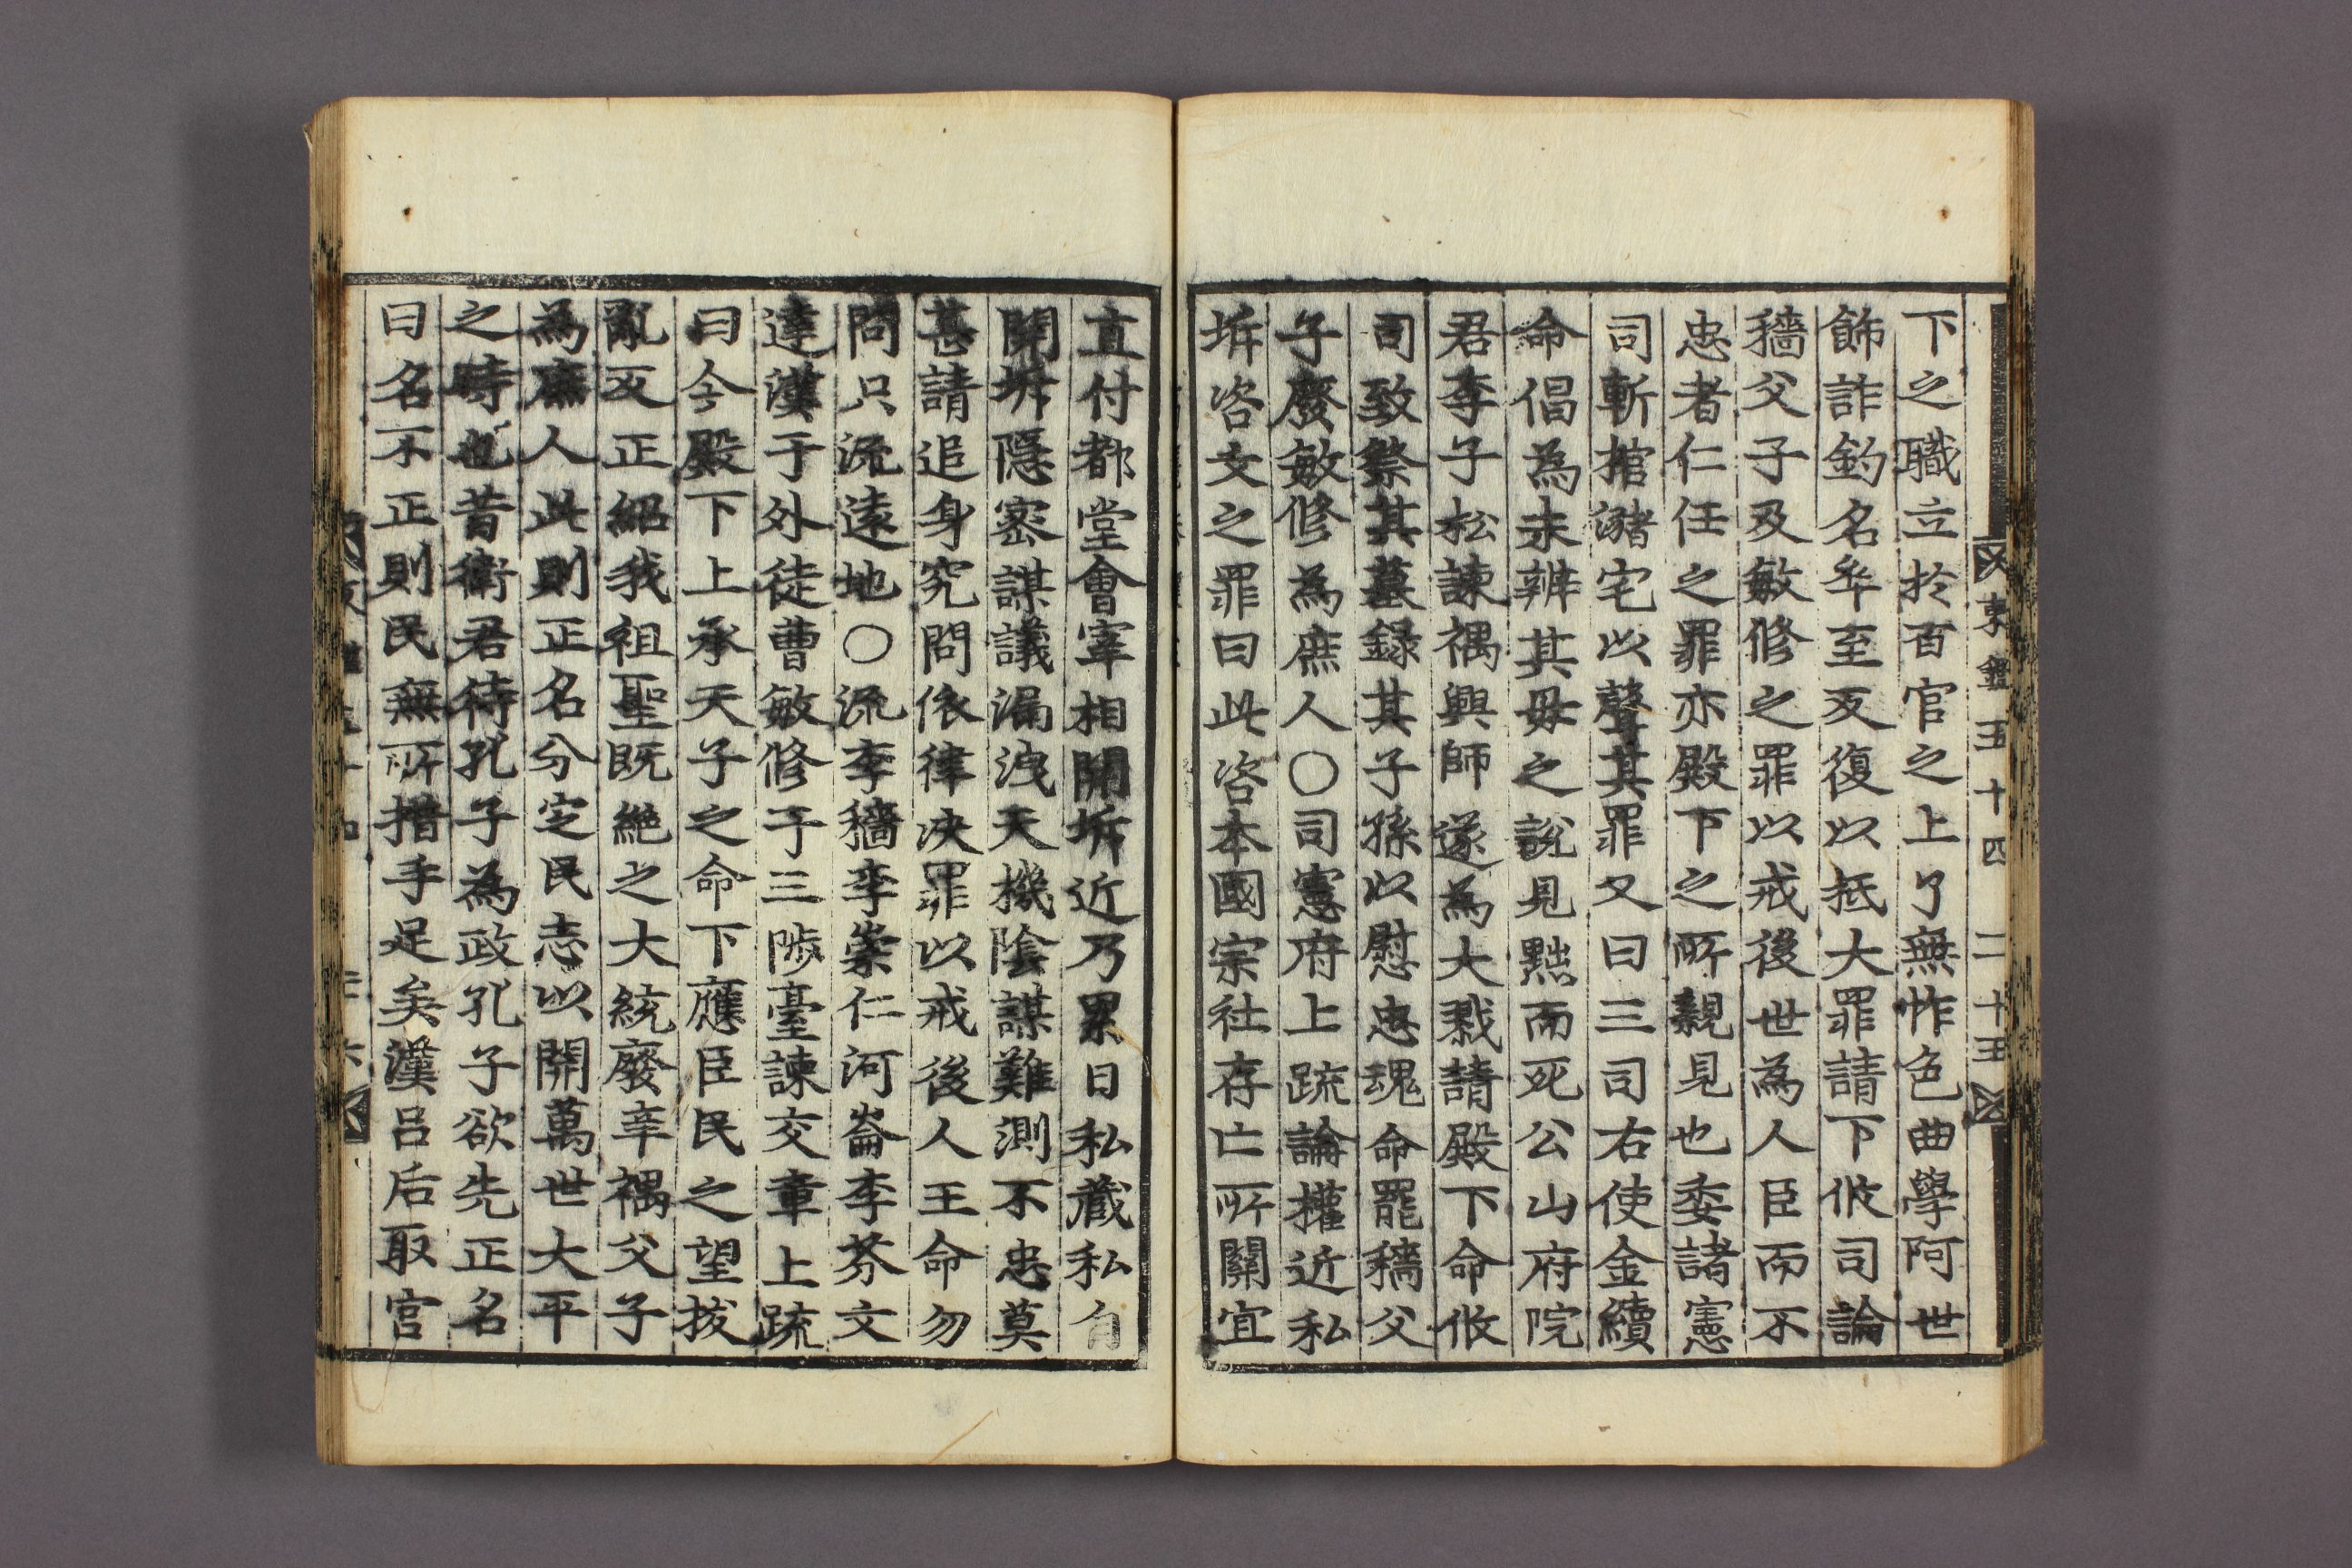 東鑑五十四 二十五
下之職立於百官之上了無怍色曲學阿世
飾詐釣名牟至反復以抵大罪請下攸司論
穡父子及敏修之罪以戒後世為人臣而不
忠者仁任之罪亦殿下之所親見也委諸憲
司斬棺瀦宅以聲其罪又曰三司右使金續
命倡為未辨其毋之說見黜而死公山府院
君李子松諫禑興師遂為大戮請殿下命攸
司致祭其墓録其子孫以慰忠魂命罷穡父
子廢敏修為庶人○司憲府上䟽論權近私
坼咨文之罪曰此咨本國宗社存亡所關宜
直付都堂會宰相開坼近乃累日私藏私自
開坼隱密謀議漏洩天機陰謀難測不忠莫
甚請追身究問依律决罪以戒後人王命勿
問只流遠地○流李穡李崇仁河崙李芬文
達漢于外徒曹敏修于三陟臺諫交章上䟽
曰今殿下上承天子之命下應臣民之望拔
亂反正紹我祖聖既絶之大統廢辛禑父子
為庶人此則正名分定民志以開萬世大平
之時也昔衛君待孔子為政孔子欲先正名
曰名不正則民無所措手足矣漢呂后取官